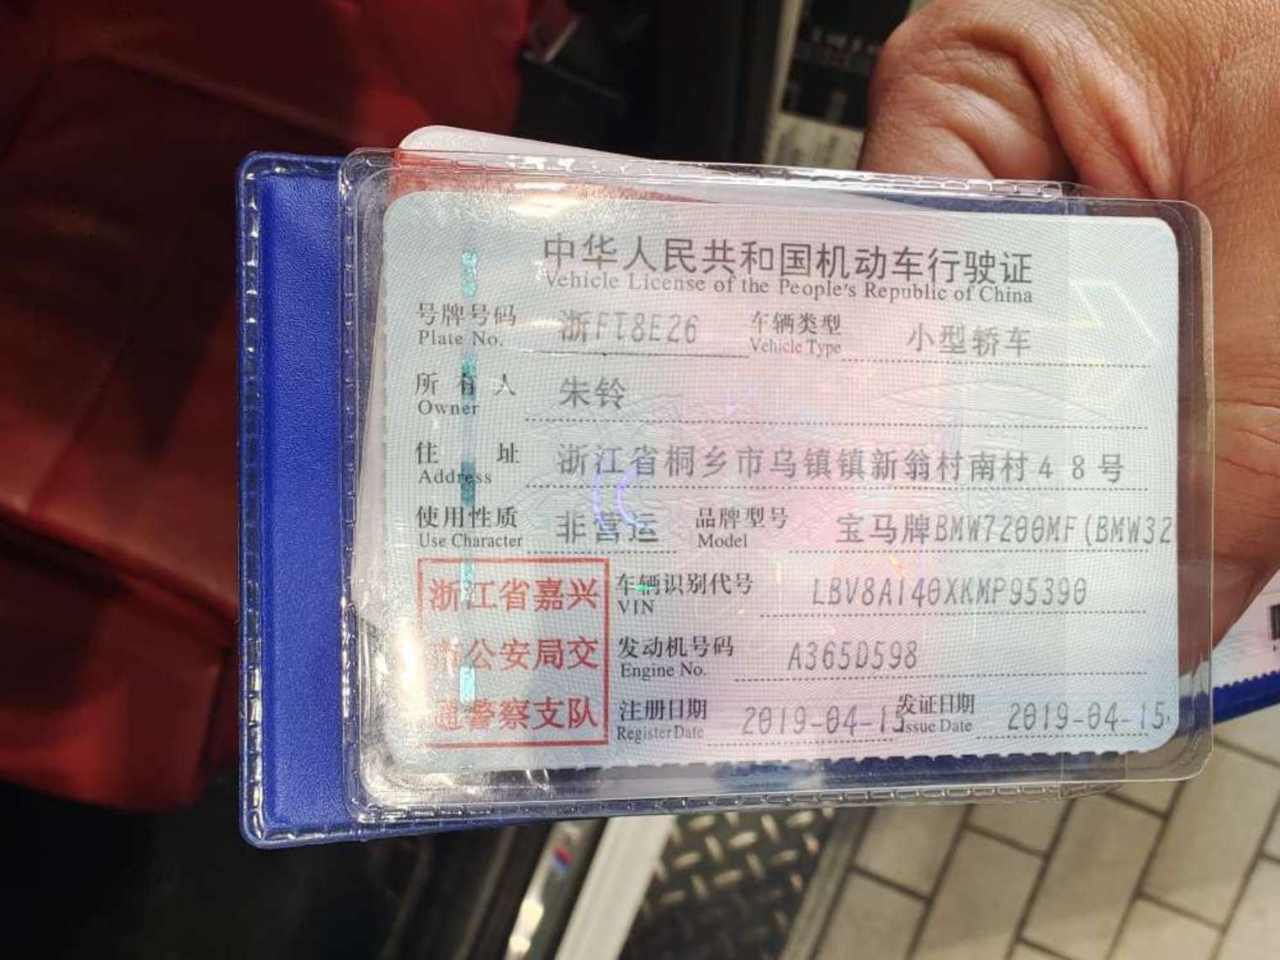 中华人民共和国机动车行驶证
Vehicle License of the People's Republic of China
号牌号码 浙FT8E26 车辆类型 小型轿车
Plate No. Vehicle Type
所有人 朱铃
Owner
住址 浙江省桐乡市乌镇镇新翁村南村48号
Address
使用性质 非营运 品牌型号 宝马牌BMW7200MF(BMW32
Use Character Model
浙江省嘉兴
市公安局交
通警察支队
车辆识别代号 LBV8A140XKMP95390
VIN
发动机号码 A365D598
Engine No.
注册日期 2019-04-15 发证日期 2019-04-15
Register Date Issue Date